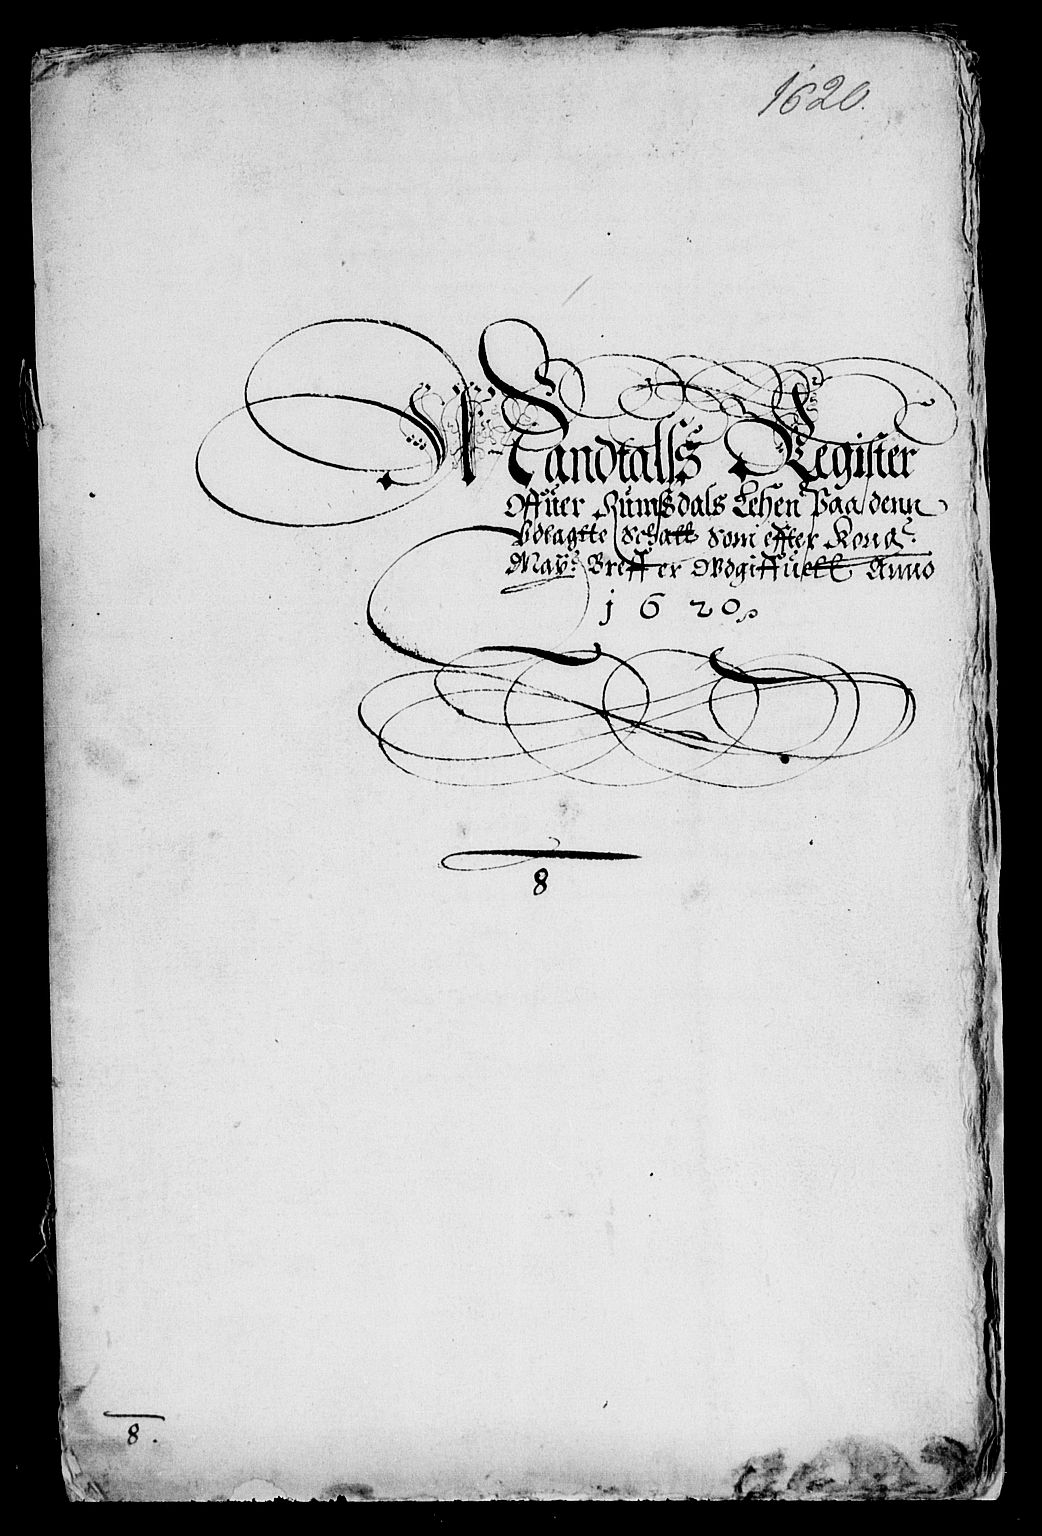 1620.
Mandtalss Register
Offuer Rumssdals Lehen Paa denn
Vdlagtte Schatt som effter Kong:
May: Breff er Vdgiffuett Anno
1620
8
8.